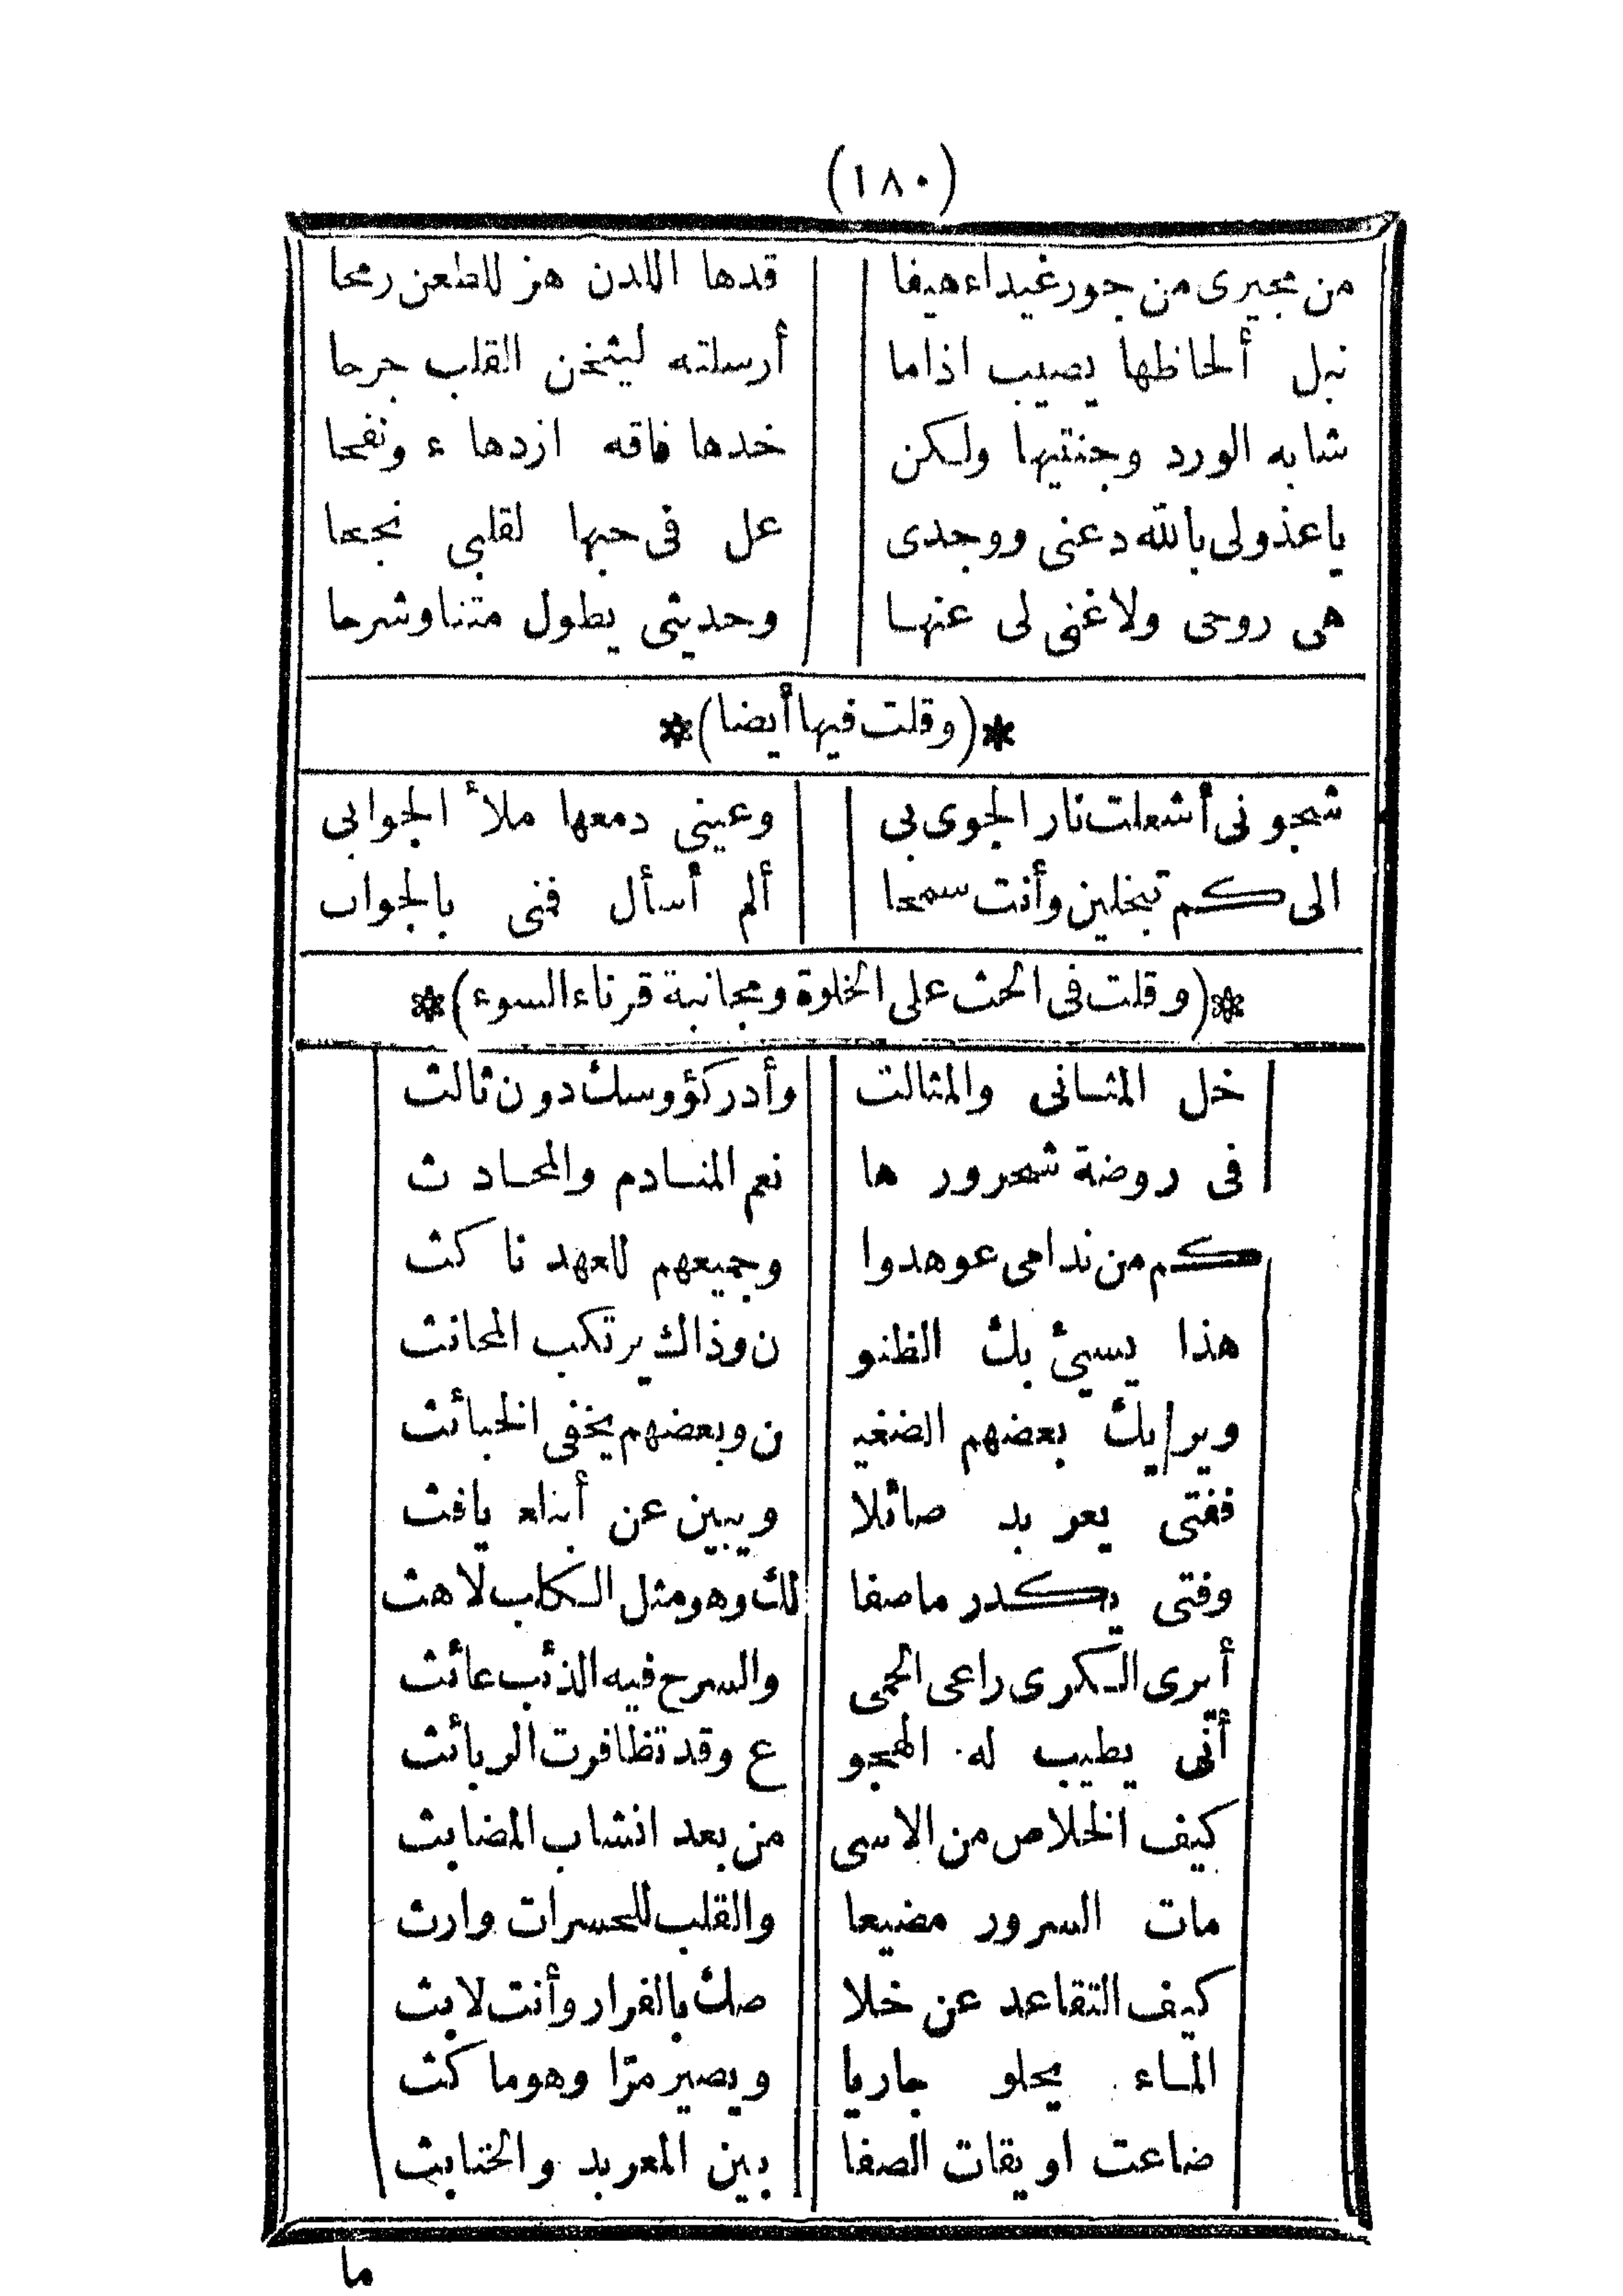 (١٨٠)
من مجيرى من جور غيداء هيفا قدها اللدن هز للطعن رمحا
نبل ألحاظها يصيب اذا ما أرسلته ليثخن القلب جرحا
شابه الورد وجنتيها ولكن خدها فاقه ازدهاء ونفحا
يا عذولى بالله دعنى ووجدى عل فى حبها لقلبى نجحا
هى روحى ولا غنى لى عنها وحديثى يطول متنا وشرحا
*(وقلت فيها أيضا)*
شجونى أشعلت نار الجوى بى وعينى دمعها ملأ الجوابى
الى كم تبخلين وأنت سمحا ألم أسأل فمنى بالجواب
*(وقلت فى الحث على الخلوة ومجانبة قرناء السوء)*
خل المثانى والمثالث وأدر كؤوسك دون ثالث
فى روضة شحرورها نعم المنادم والمحادث
كم من ندامى عوهدوا وجميعهم للعهد ناكث
هذا يسئ بك الظنو ن وذاك يرتكب المحانث
ويرايك بعضهم الضغيـ ن وبعضهم يخفى الخبائث
ففتى يعربد صائلا ويبين عن أبناء يافث
وفتى يكدر ما صفا لك وهو مثل الكلب لاهث
أيرى الكرى راعى الحمى والسرح فيه الذئب عائث
أنّى يطيب له الهجو ع وقد تظافرت الربائث
كيف الخلاص من الاسى من بعد انشاب المضابث
مات السرور مضيعا والقلب للحسرات وارث
كيف التقاعد عن خلا صك بالفرار وأنت لابث
الماء يحلو جاريا ويصير مرّا وهو ماكث
ضاعت اويقات الصفا بين المعربد والخنابث
ما